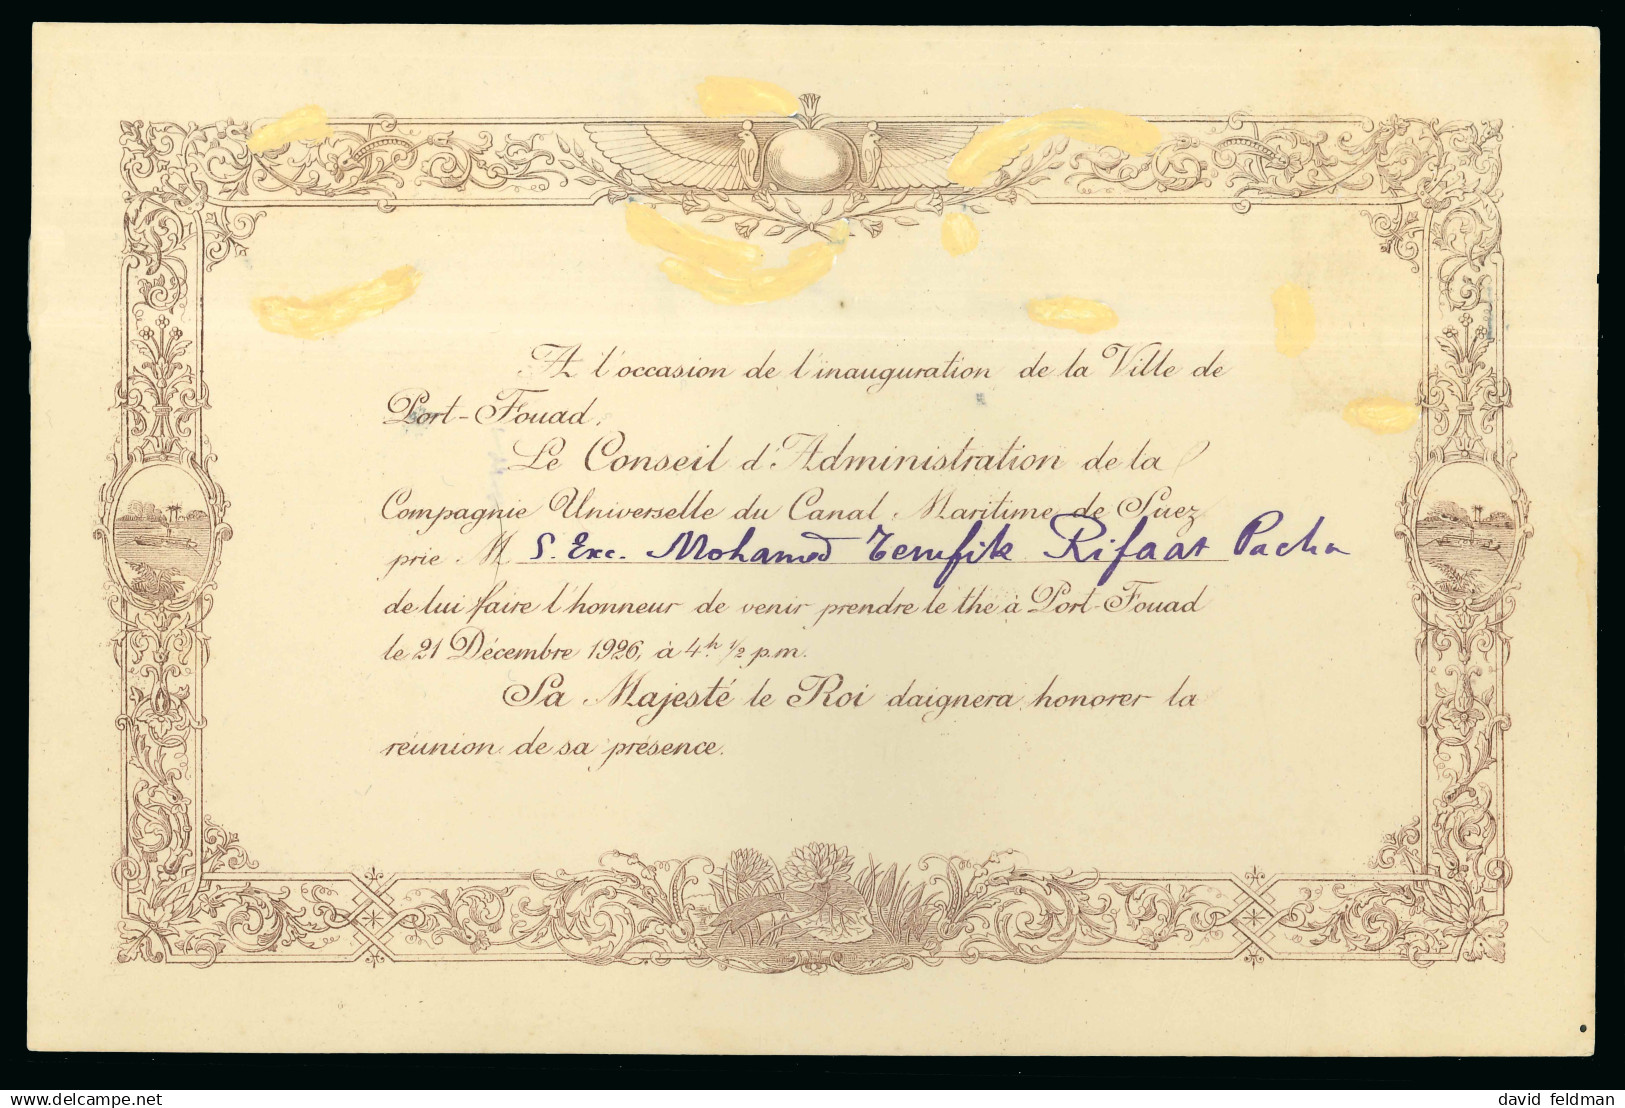 A l'occasion de l'inauguration de la Ville de
Port-Fouad,
Le Conseil d'Administration de la
Compagnie Universelle du Canal Maritime de Suez
prie M. S. Exc. Mohamed Tewfik Rifaat Pacha
de lui faire l'honneur de venir prendre le thé à Port-Fouad
le 21 Décembre 1926, à 4h 1/2 p.m.
Sa Majesté le Roi daignera honorer la
réunion de sa présence.
david feldman